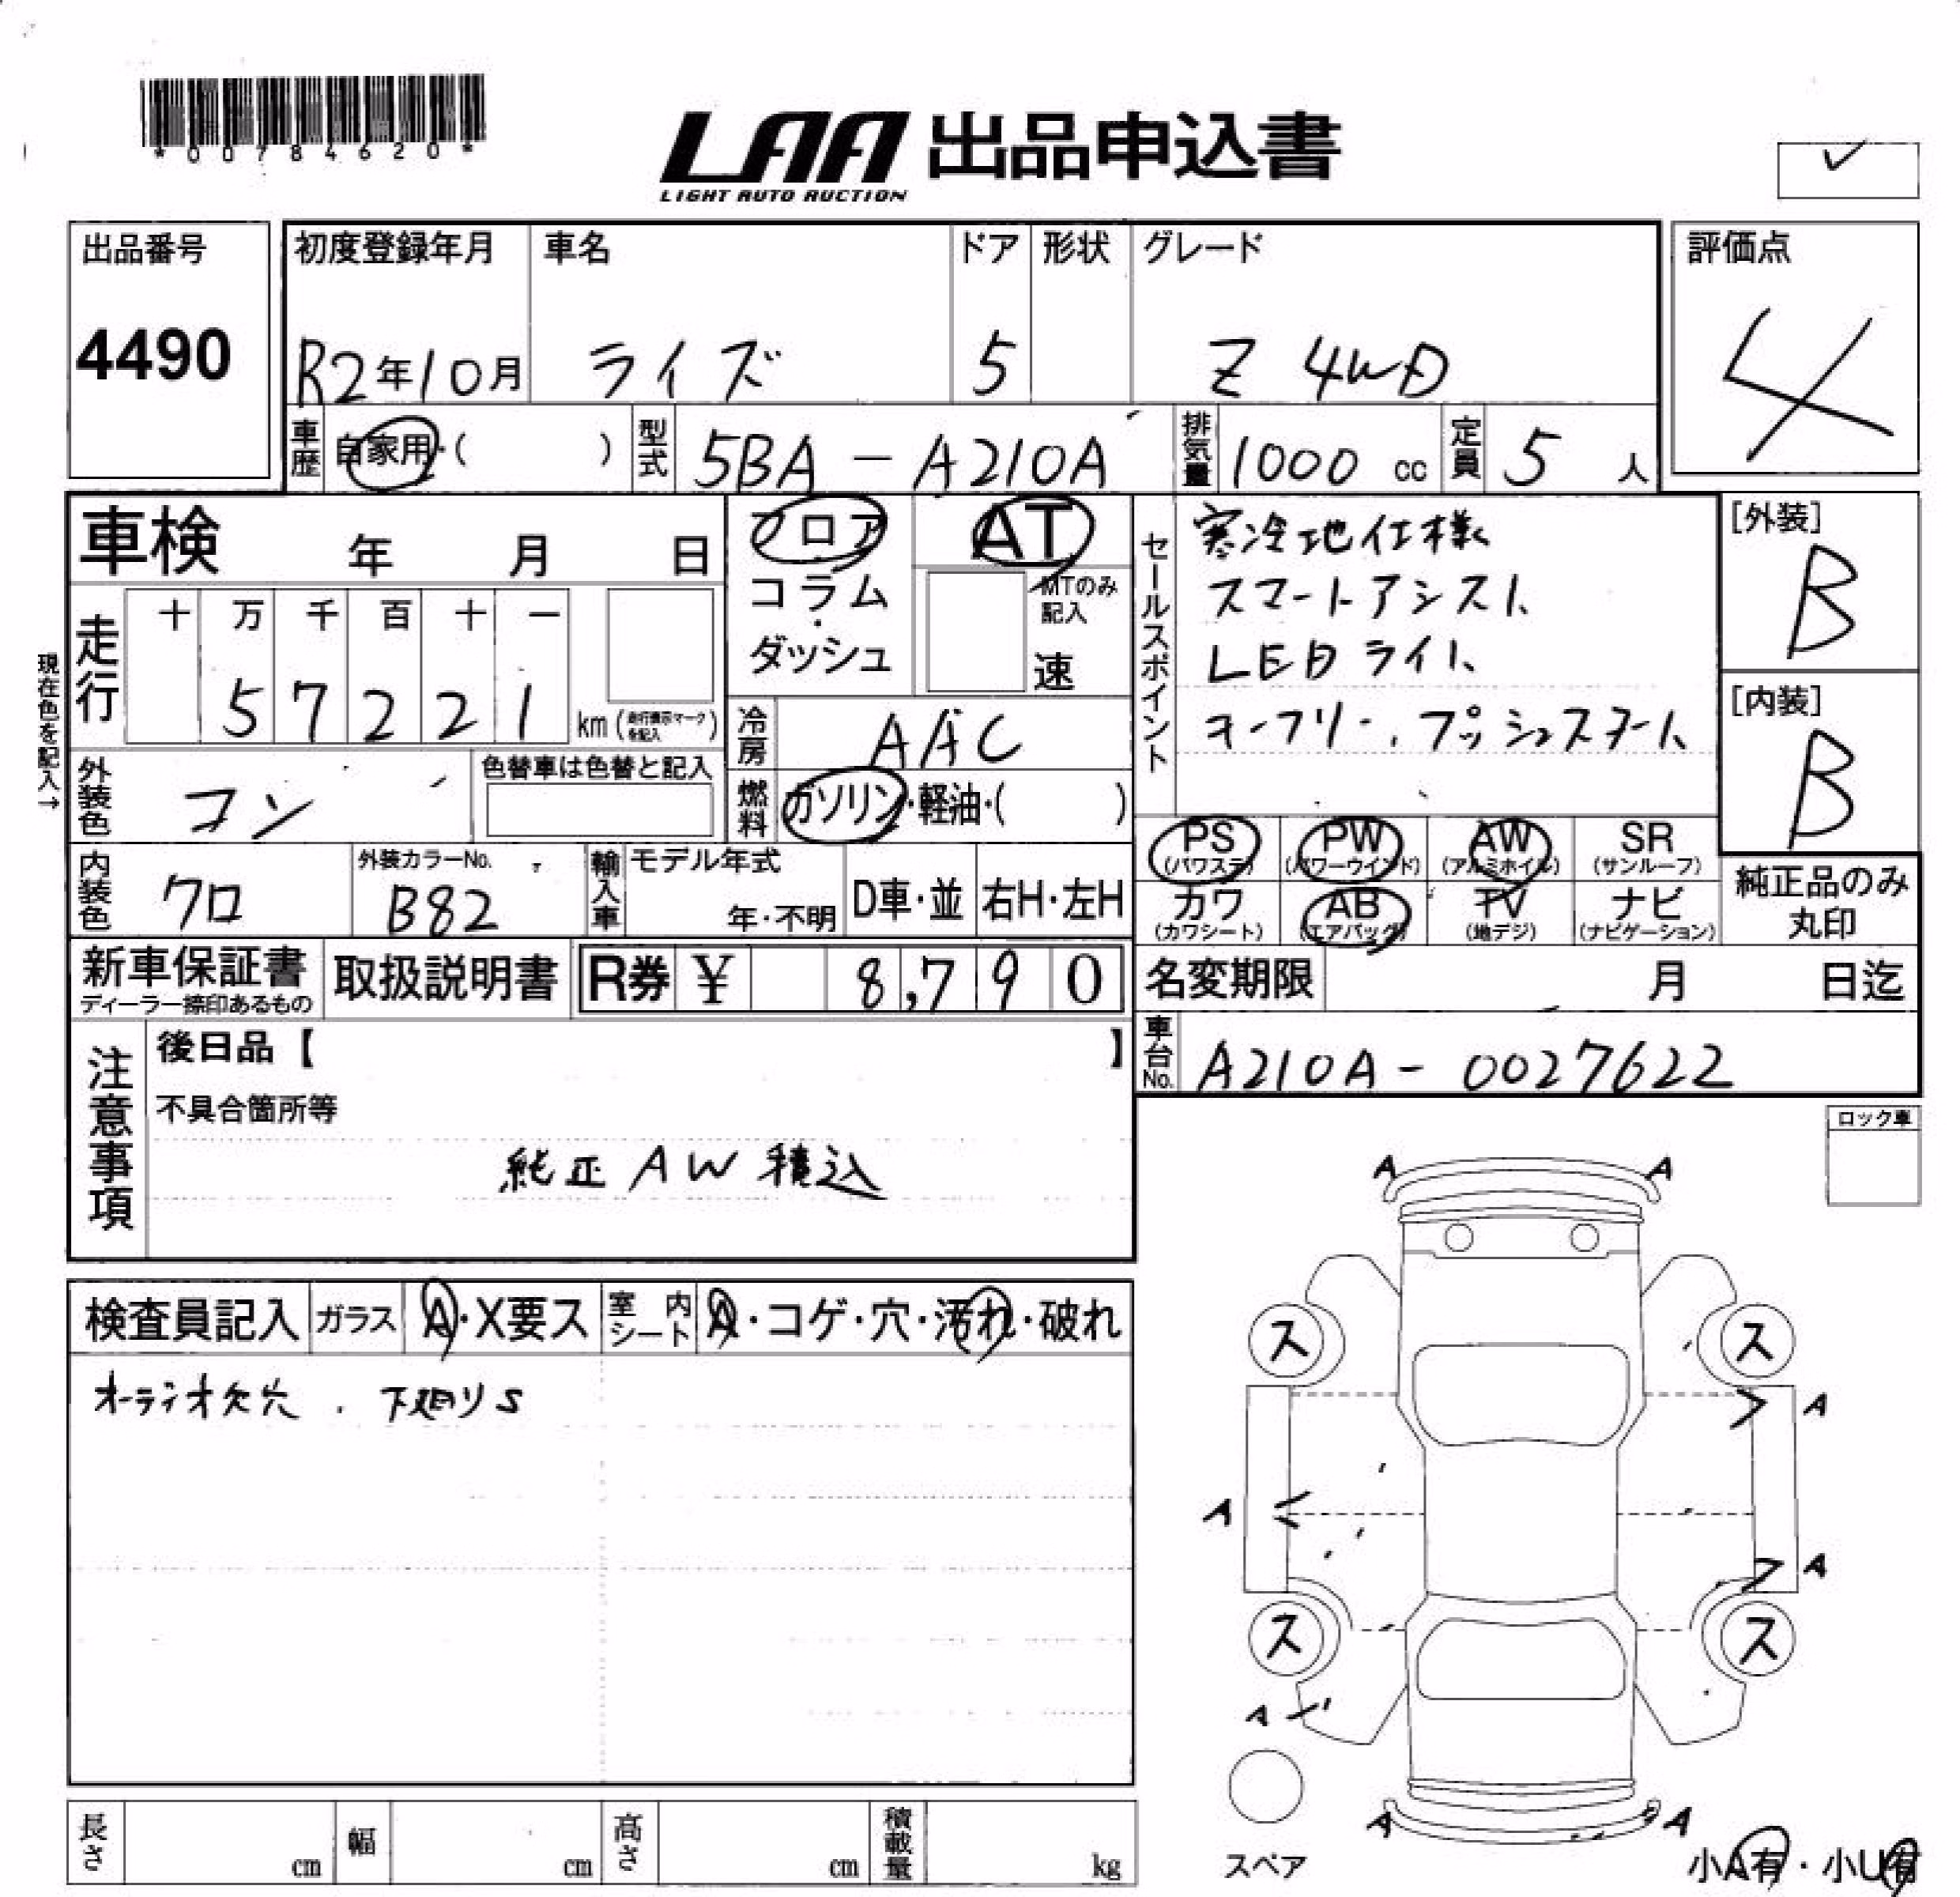 *00784620*
LAA 出品申込書
LIGHT AUTO AUCTION
✓
出品番号
4490
初度登録年月 車名 ドア 形状 グレード
R2年10月 ライズ 5 Z 4WD
評価点
4
車歴 自家用・( ) 型式 5BA-A210A 排気量 1000 cc 定員 5 人
車検 年 月 日
フロア・コラム・ダッシュ
AT
MTのみ記入
速
現在色を記入→
走行 十 万 千 百 十 一
57221 km (走行表示マークを記入)
冷房 AAC
外装色 コン
色替車は色替と記入
燃料 ガソリン・軽油・( )
内装色 クロ
外装カラーNo. B82
輸入車 モデル年式 年・不明 D車・並 右H・左H
セールスポイント
寒冷地仕様
スマートアシスト
LEDライト
キーフリー、プッシュスタート
[外装]
B
[内装]
B
PS (パワステ) PW (パワーウインド) AW (アルミホイル) SR (サンルーフ)
カワ (カワシート) AB (エアバッグ) TV (地デジ) ナビ (ナビゲーション)
純正品のみ丸印
新車保証書
ディーラー捺印あるもの
取扱説明書
R券 ¥ 8,790
名変期限 月 日迄
車台No. A210A-0027622
注意事項
後日品【 】
不具合箇所等
純正AW積込
ロック車
検査員記入 ガラス A・X要ス 室内シート A・コゲ・穴・汚れ・破れ
オーディオ欠穴. 下廻りS
A A
ス ス
A
A
A
ス ス
A
スペア
A A
小A有・小U有
長さ cm 幅 cm 高さ cm 積載量 kg